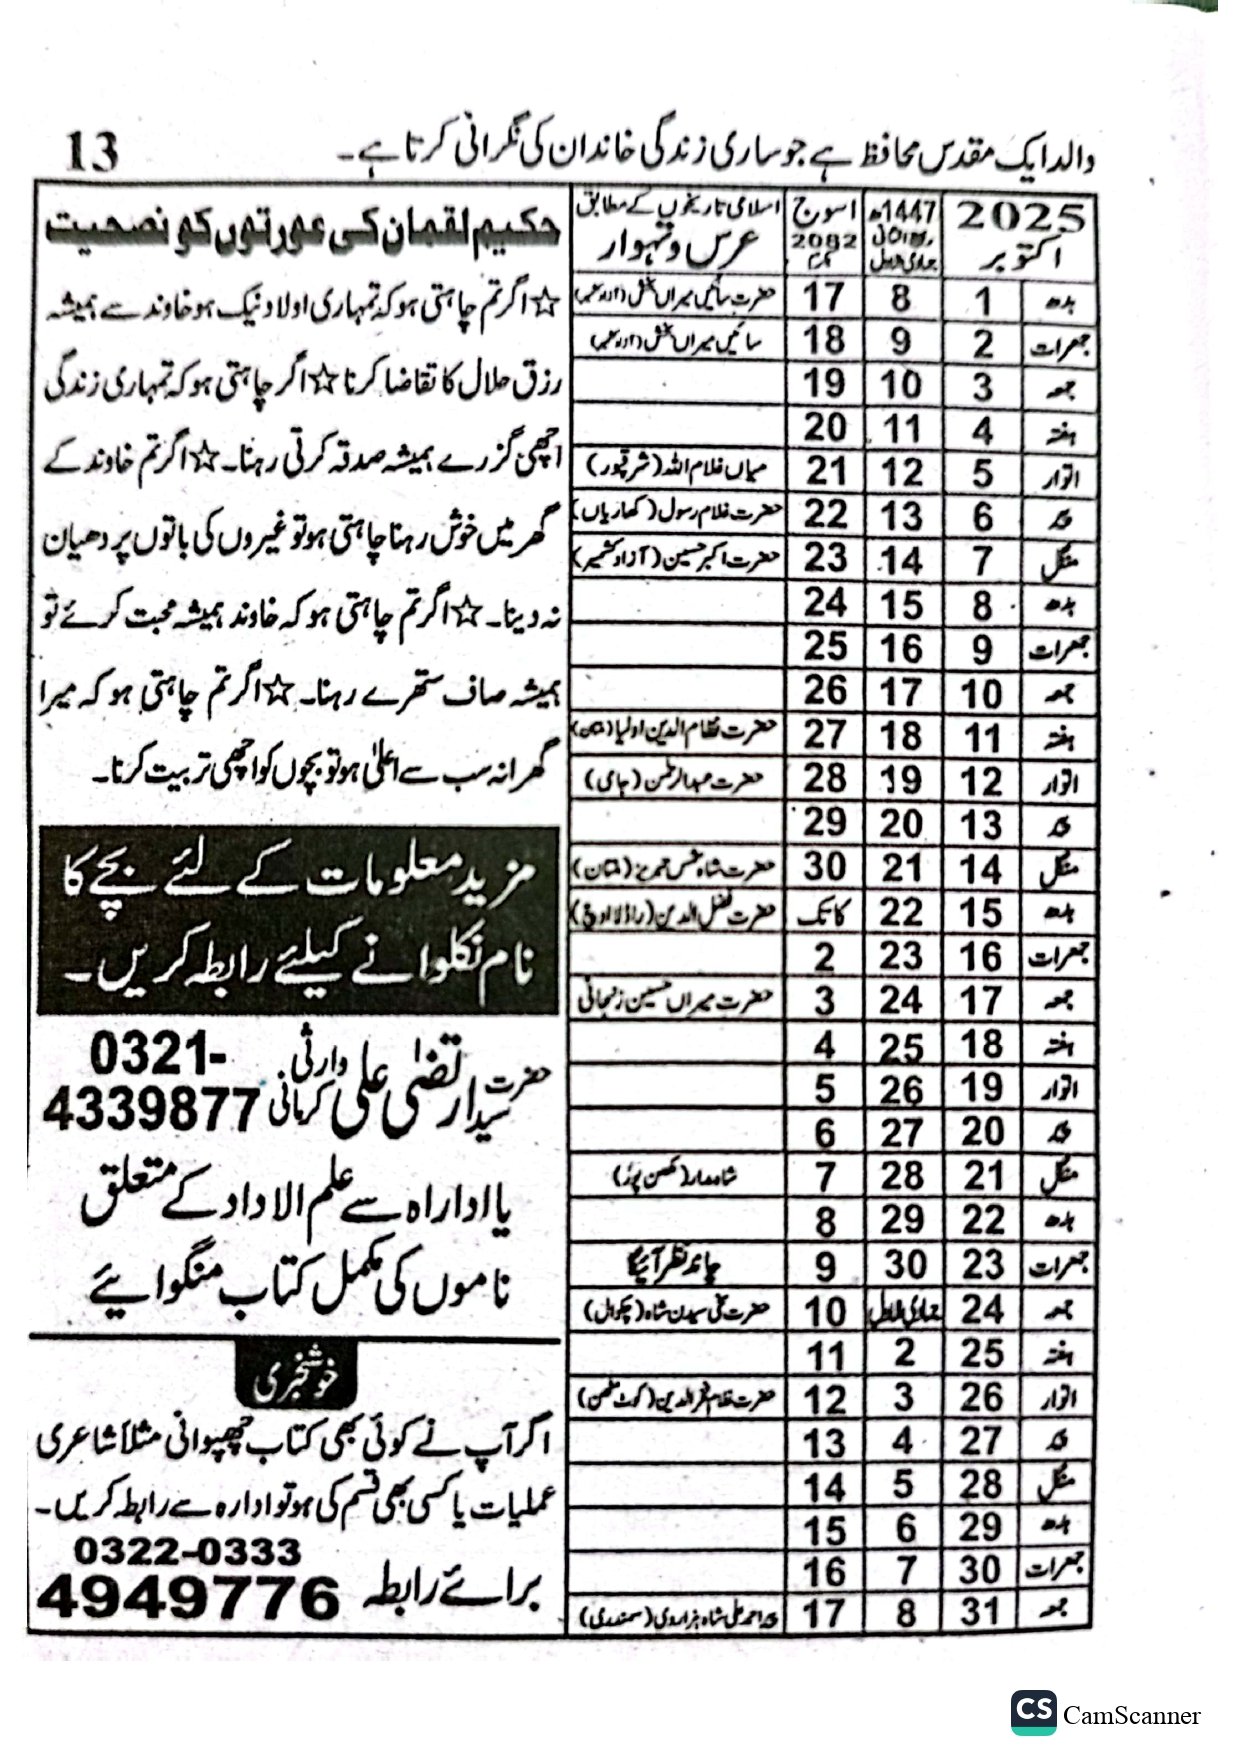 والد ایک مقدس محافظ ہے جو ساری زندگی خاندان کی نگرانی کرتا ہے۔ 13
2025 اکتوبر | 1447ھ | اسوج 2082 | اسلامی تاریخوں کے مطابق عرس و تہوار
بدھ 1 8 17 حضرت سائیں میراں بخش
جمعرات 2 9 18 سائیں میراں بخش
جمعہ 3 10 19
ہفتہ 4 11 20
اتوار 5 12 21 میاں غلام اللہ (شرقپور)
پیر 6 13 22 حضرت غلام رسول (کھاریاں)
منگل 7 14 23 حضرت اکبر حسین (آزاد کشمیر)
بدھ 8 15 24
جمعرات 9 16 25
جمعہ 10 17 26
ہفتہ 11 18 27 حضرت نظام الدین اولیا
اتوار 12 19 28 حضرت عبدالرحمن (جامی)
پیر 13 20 29
منگل 14 21 30 حضرت شاہ شمس تبریز (ملتان)
بدھ 15 22 کاتک حضرت فضل الدین
جمعرات 16 23 2
جمعہ 17 24 3 حضرت میراں حسین زنجانی
ہفتہ 18 25 4
اتوار 19 26 5
پیر 20 27 6
منگل 21 28 7 شاہ مدار (مکھن پور)
بدھ 22 29 8
جمعرات 23 30 9 چاند نظر آئیگا
جمعہ 24 جمادی الاول 10 حضرت سخی سیدن شاہ (چکوال)
ہفتہ 25 2 11
اتوار 26 3 12 حضرت غلام فخرالدین (کوٹ مٹھن)
پیر 27 4 13
منگل 28 5 14
بدھ 29 6 15
جمعرات 30 7 16
جمعہ 31 8 17 پیر احمد علی شاہ (سمندری)
حکیم لقمان کی عورتوں کو نصحیت
☆ اگر تم چاہتی ہو کہ تمہاری اولاد نیک ہو خاوند سے ہمیشہ
رزق حلال کا تقاضا کرنا ☆ اگر چاہتی ہو کہ تمہاری زندگی
اچھی گزرے ہمیشہ صدقہ کرتی رہنا۔ ☆ اگر تم خاوند کے
گھر میں خوش رہنا چاہتی ہو تو غیروں کی باتوں پر دھیان
نہ دینا۔ ☆ اگر تم چاہتی ہو کہ خاوند ہمیشہ محبت کرے تو
ہمیشہ صاف ستھرے رہنا۔ ☆ اگر تم چاہتی ہو کہ میرا
گھرانہ سب سے اعلیٰ ہو تو بچوں کو اچھی تربیت کرنا۔
مزید معلومات کے لئے بچے کا
نام نکلوانے کیلئے رابطہ کریں۔
حضرت سیدارتضیٰ علی وارثی کرمانی 0321-4339877
یا اداراہ سے علم الاداد کے متعلق
ناموں کی مکمل کتاب منگوایئے
خوشخبری
اگر آپ نے کوئی بھی کتاب چھپوانی مثلاً شاعری
عملیات یا کسی بھی قسم کی ہو تو ادارہ سے رابطہ کریں۔
0322-0333
برائے رابطہ 4949776
CS CamScanner